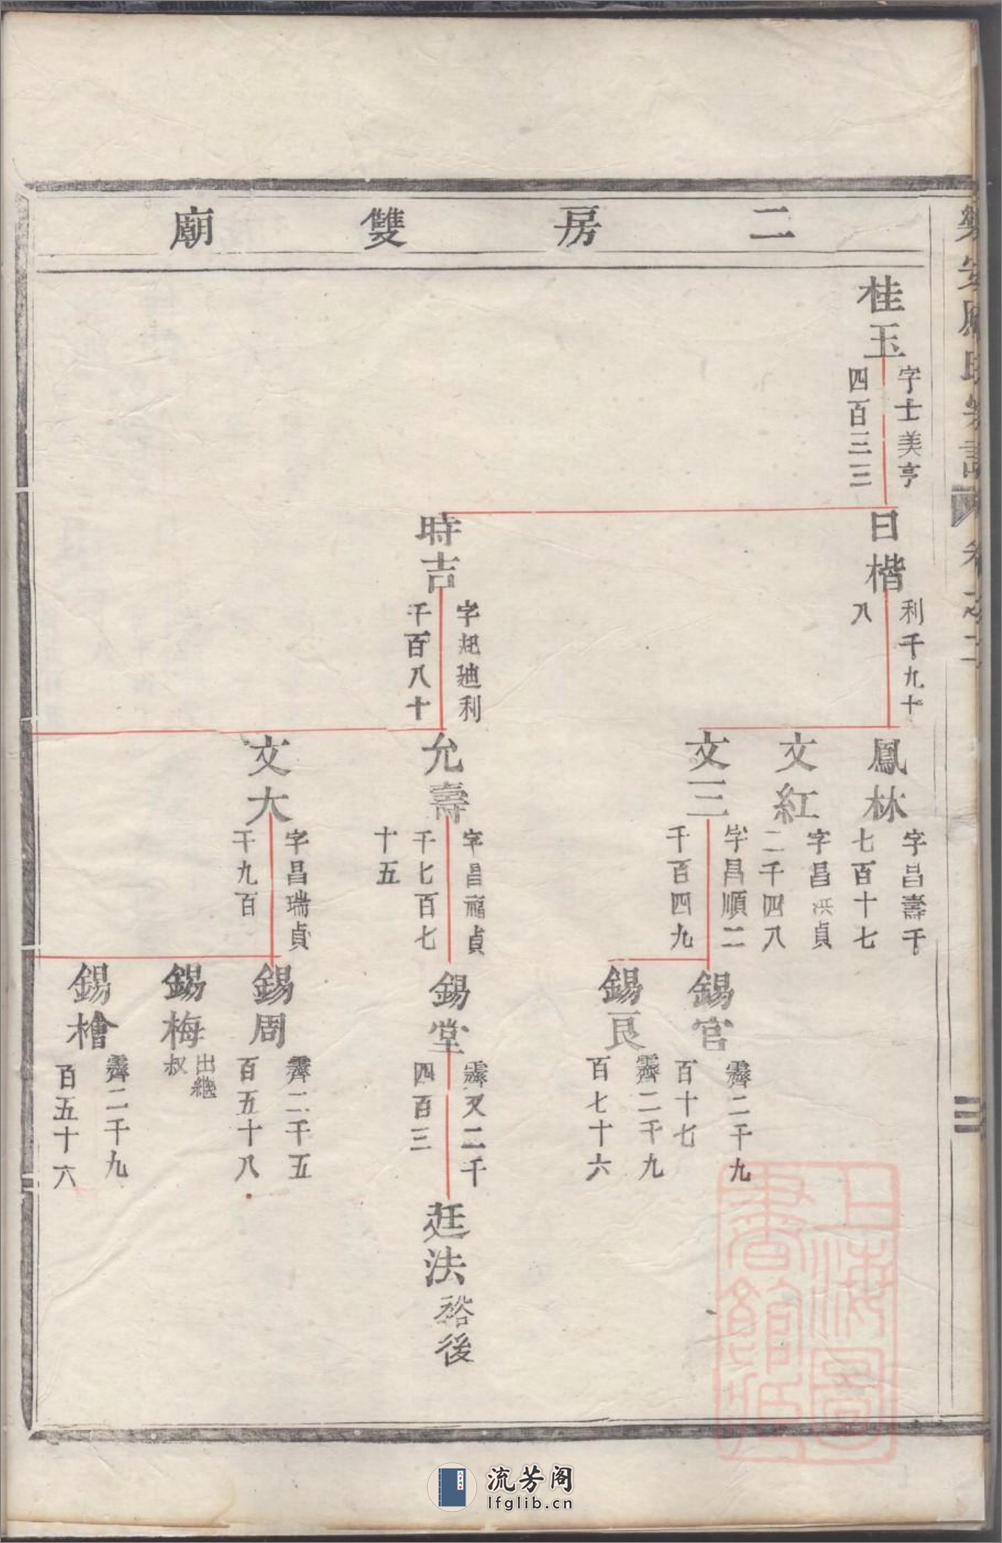 二房雙廟
桂玉
字士美亨
四百三三
日楷
利千九十
八
時吉
字起迪利
千百八十
鳳林
字昌壽千
七百十七
文紅
字昌洪貞
二千四八
文三
字昌順二
千百四九
允壽
字昌福貞
千七百七
十五
文大
字昌瑞貞
千九百
錫官
霽二千九
百十七
錫良
霽二千九
百七十六
錫堂
霽又二千
四百三
錫周
霽二千五
百五十八
錫梅
出繼
叔
錫檜
霽二千九
百五十六
廷法
裕後
上海圖
書館藏
流芳阁
lfglib.cn